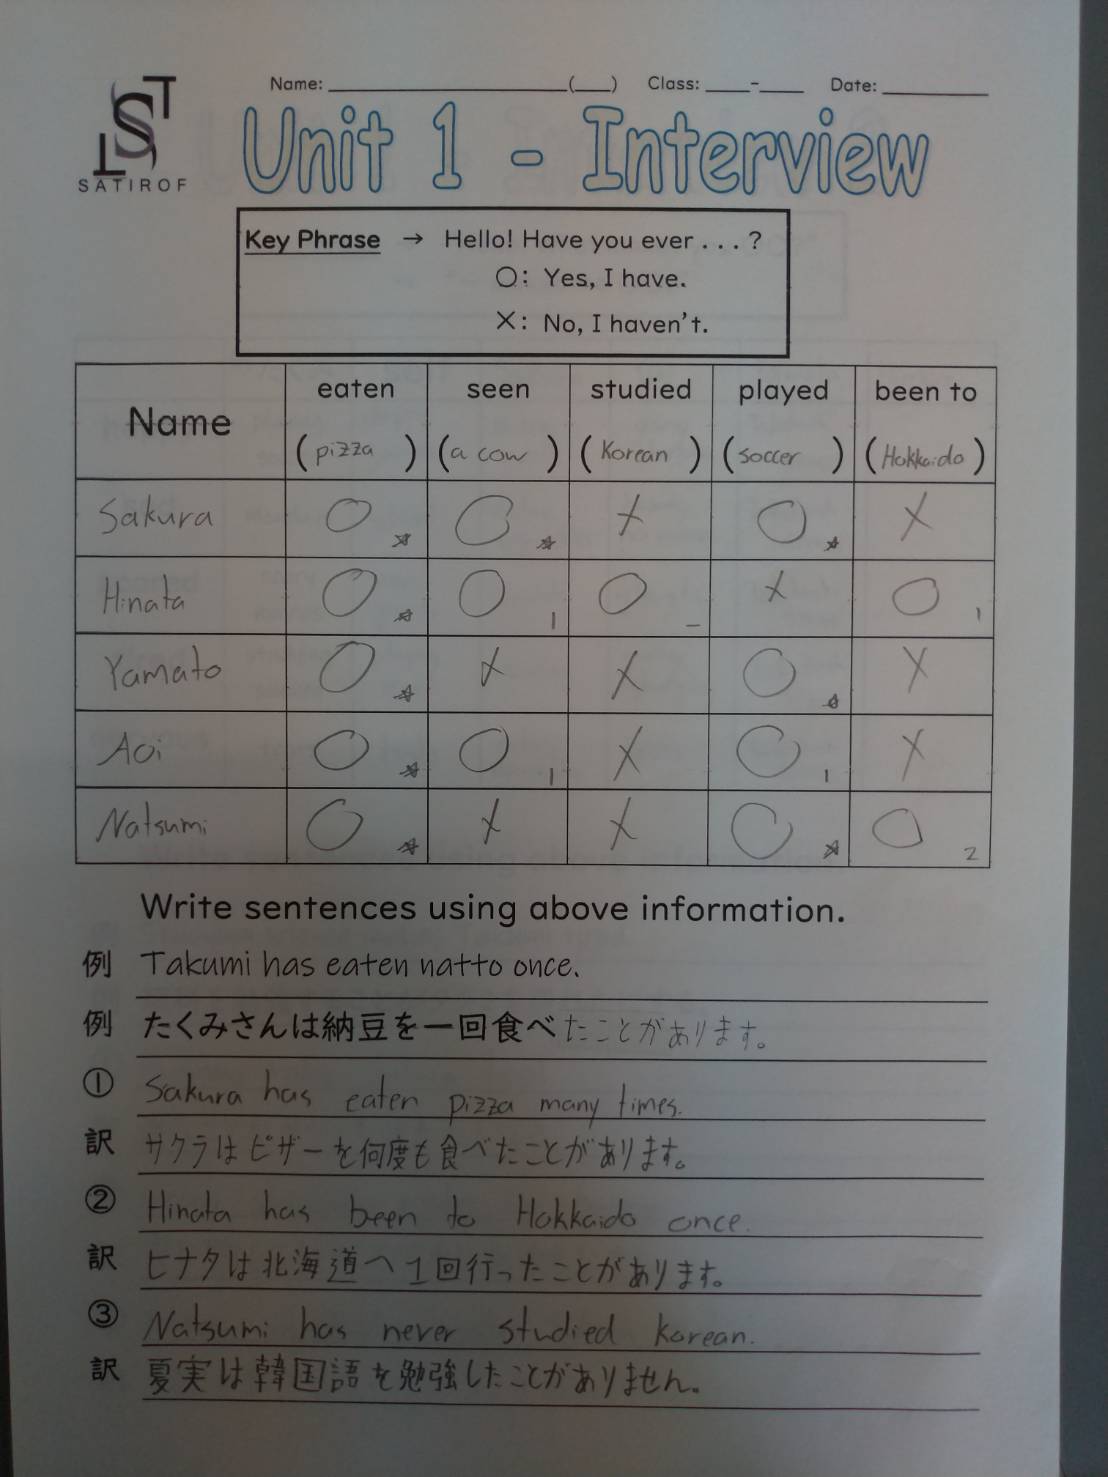 Name: ____________ (___) Class: ____-____ Date: ________
SATIROF
Unit 1 - Interview
Key Phrase → Hello! Have you ever . . . ?
○: Yes, I have.
×: No, I haven't.
Name eaten (pizza) seen (a cow) studied (Korean) played (soccer) been to (Hokkaido)
Sakura ○ ☆ ○ ☆ × ○ ☆ ×
Hinata ○ ☆ ○ 1 ○ – × ○ 1
Yamato ○ ☆ × × ○ ☆ ×
Aoi ○ ☆ ○ 1 × ○ 1 ×
Natsumi ○ ☆ × × ○ ☆ ○ 2
Write sentences using above information.
例 Takumi has eaten natto once.
例 たくみさんは納豆を一回食べたことがあります。
① Sakura has eaten pizza many times.
訳 サクラはピザーを何度も食べたことがあります。
② Hinata has been to Hokkaido once.
訳 ヒナタは北海道へ1回行ったことがあります。
③ Natsumi has never studied Korean.
訳 夏実は韓国語を勉強したことがありません。